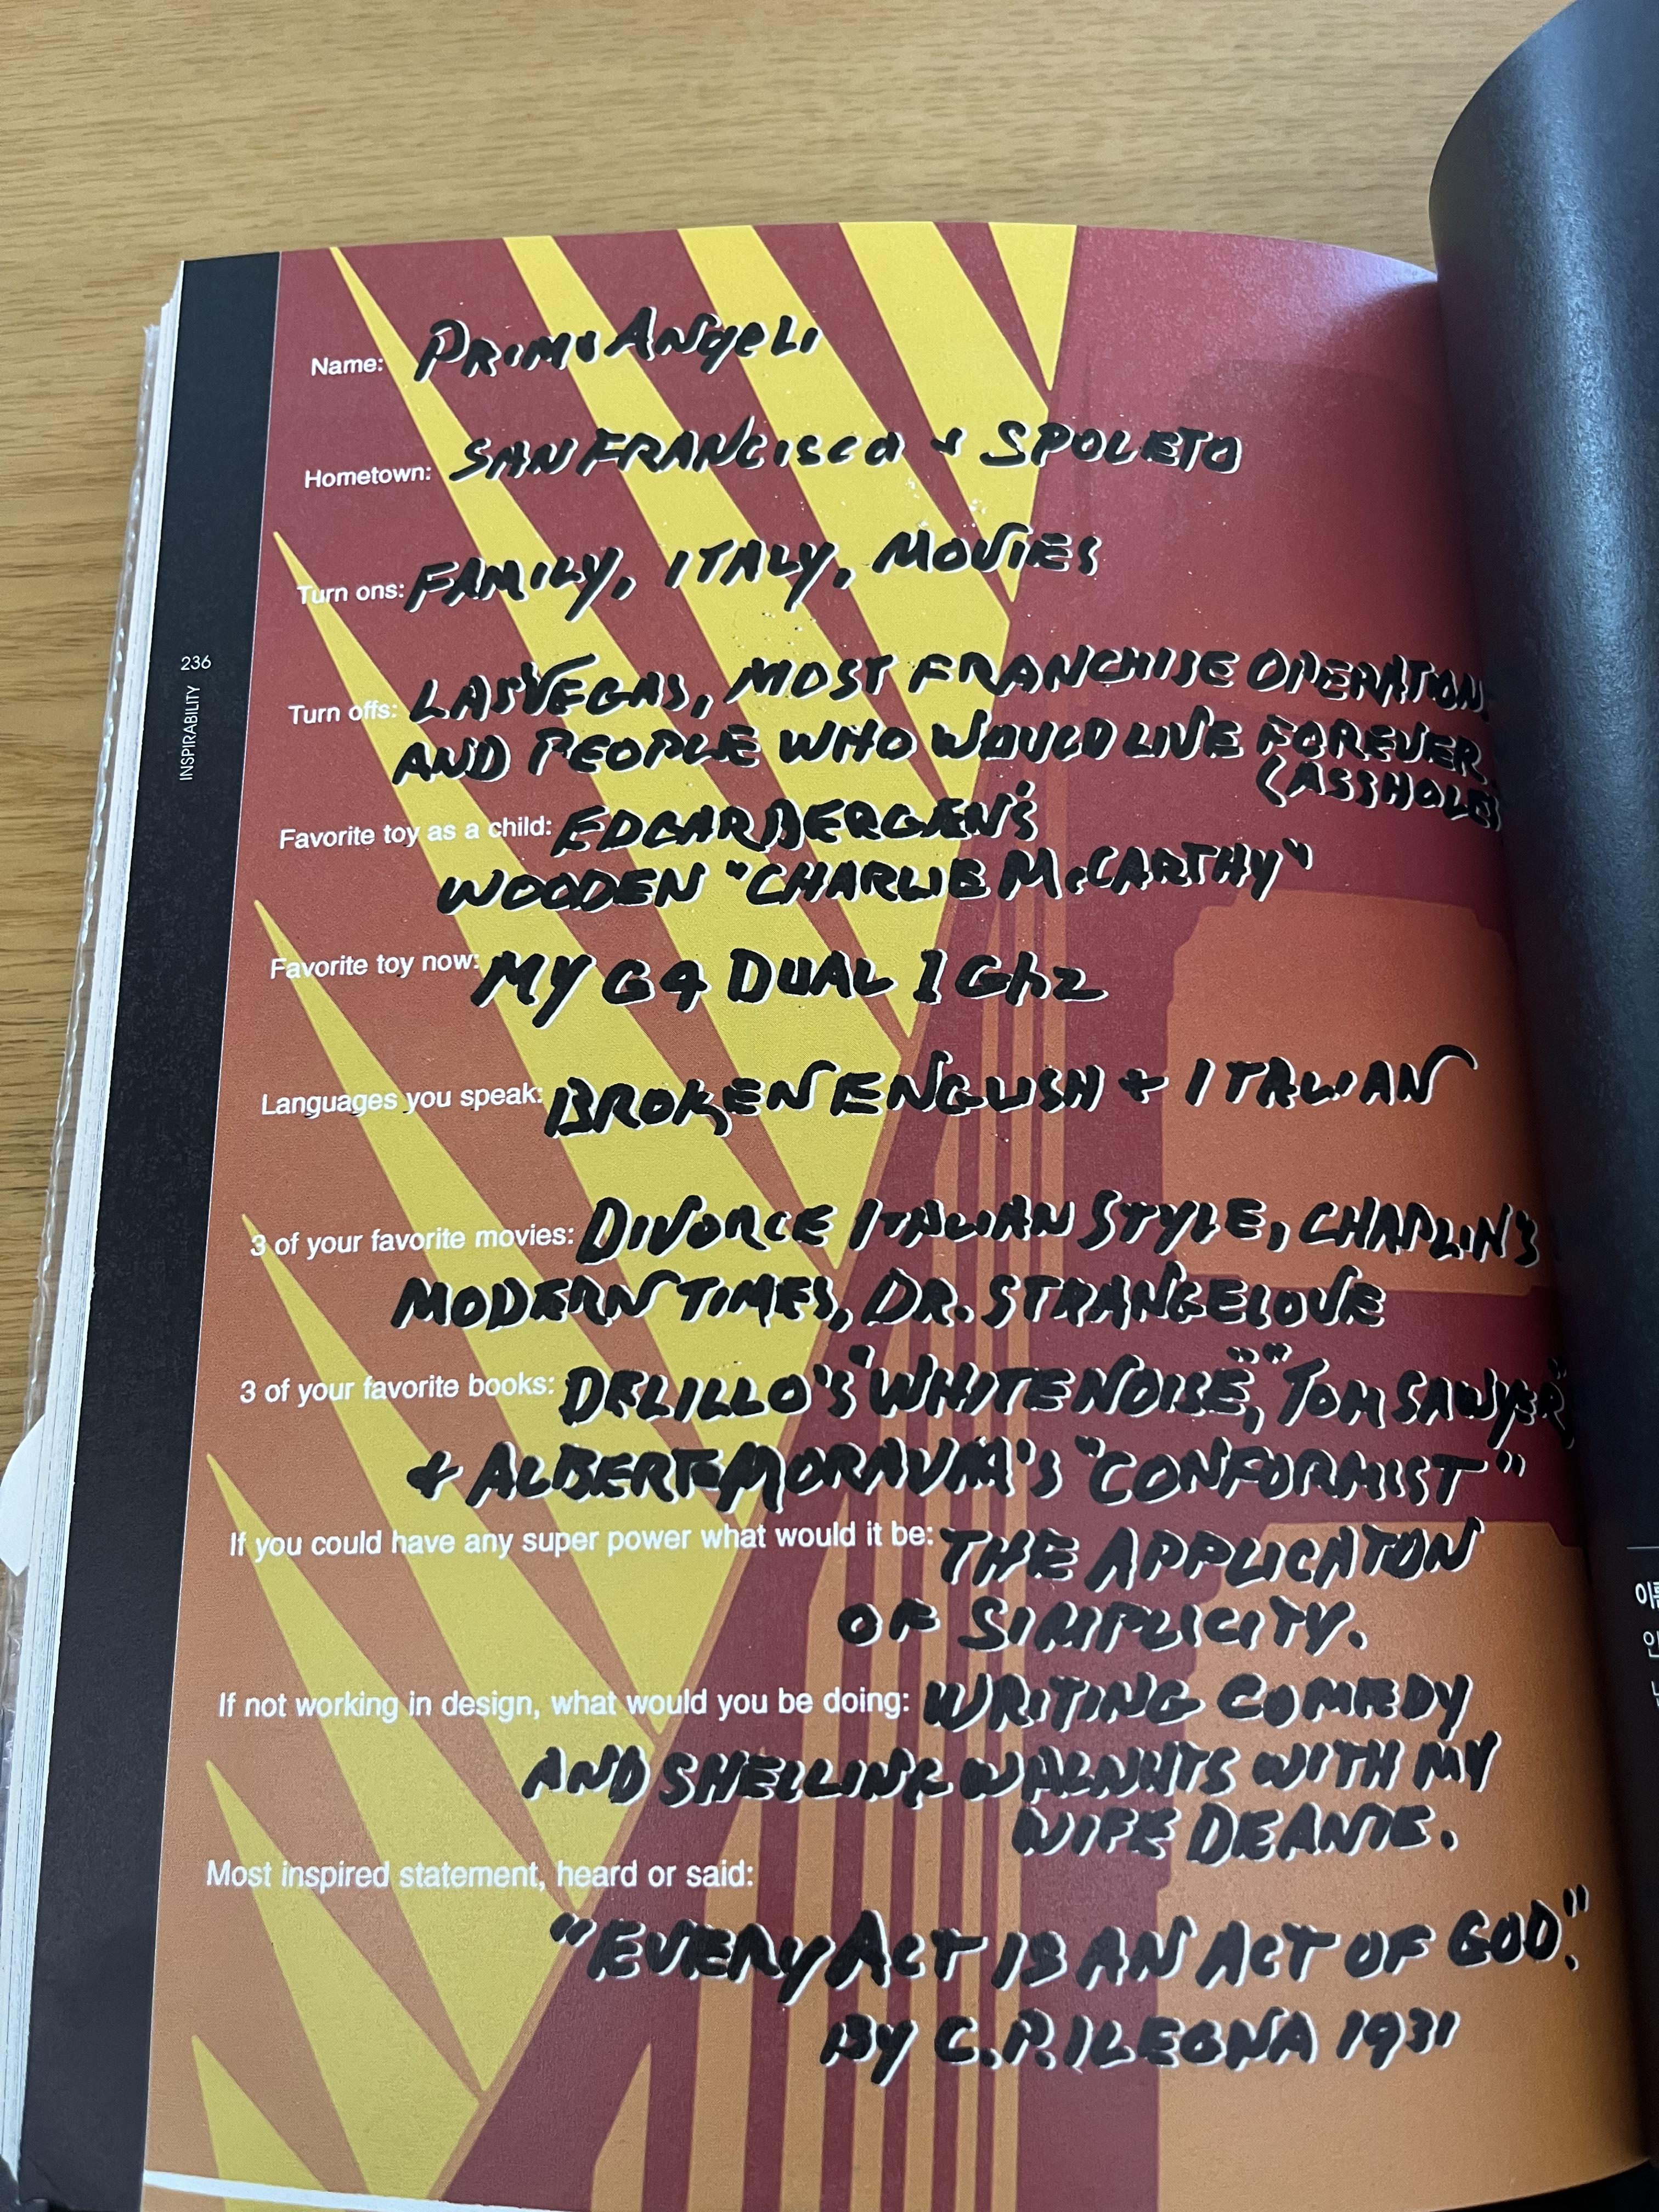 Name: Primo Angeli
Hometown: SAN FRANCISCO + SPOLETO
Turn ons: FAMILY, ITALY, MOVIES
Turn offs: LAS VEGAS, MOST FRANCHISE OPERATION
AND PEOPLE WHO WOULD LIVE FOREVER.
(ASSHOLES
Favorite toy as a child: EDGAR BERGEN'S
WOODEN "CHARLIE McCARTHY"
Favorite toy now: MY G4 DUAL 1 Ghz
Languages you speak: BROKEN ENGLISH + ITALIAN
3 of your favorite movies: DIVORCE ITALIAN STYLE, CHAPLIN'S
MODERN TIMES, DR. STRANGELOVE
3 of your favorite books: DELILLO'S "WHITE NOISE", "TOM SAWYER"
+ ALBERTO MORAVIA'S "CONFORMIST"
If you could have any super power what would it be: THE APPLICATON
OF SIMPLICITY.
If not working in design, what would you be doing: WRITING COMEDY
AND SHELLING WALNUTS WITH MY
WIFE DEANIE.
Most inspired statement, heard or said:
"EVERY ACT IS AN ACT OF GOD."
By C.P. ILEGNA 1931
236
INSPIRABILITY